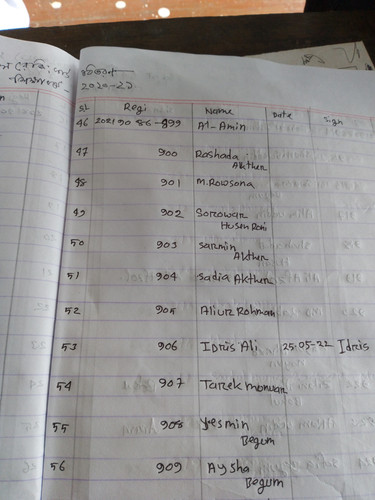 ২০২০-২১
SL Regi Name Date Sign
46 202190 86-899 Al-Amin
47 900 Rashada Akther
48 901 M.Rowsona
49 902 Sorowar Husen Roni
50 903 Sarmin Akther
51 904 Sadia Akther
52 905 Aliur Rohman
53 906 Idris Ali 25-05-22 Idris
54 907 Tarek monwar
55 908 Yesmin Begum
56 909 Aysha Begum